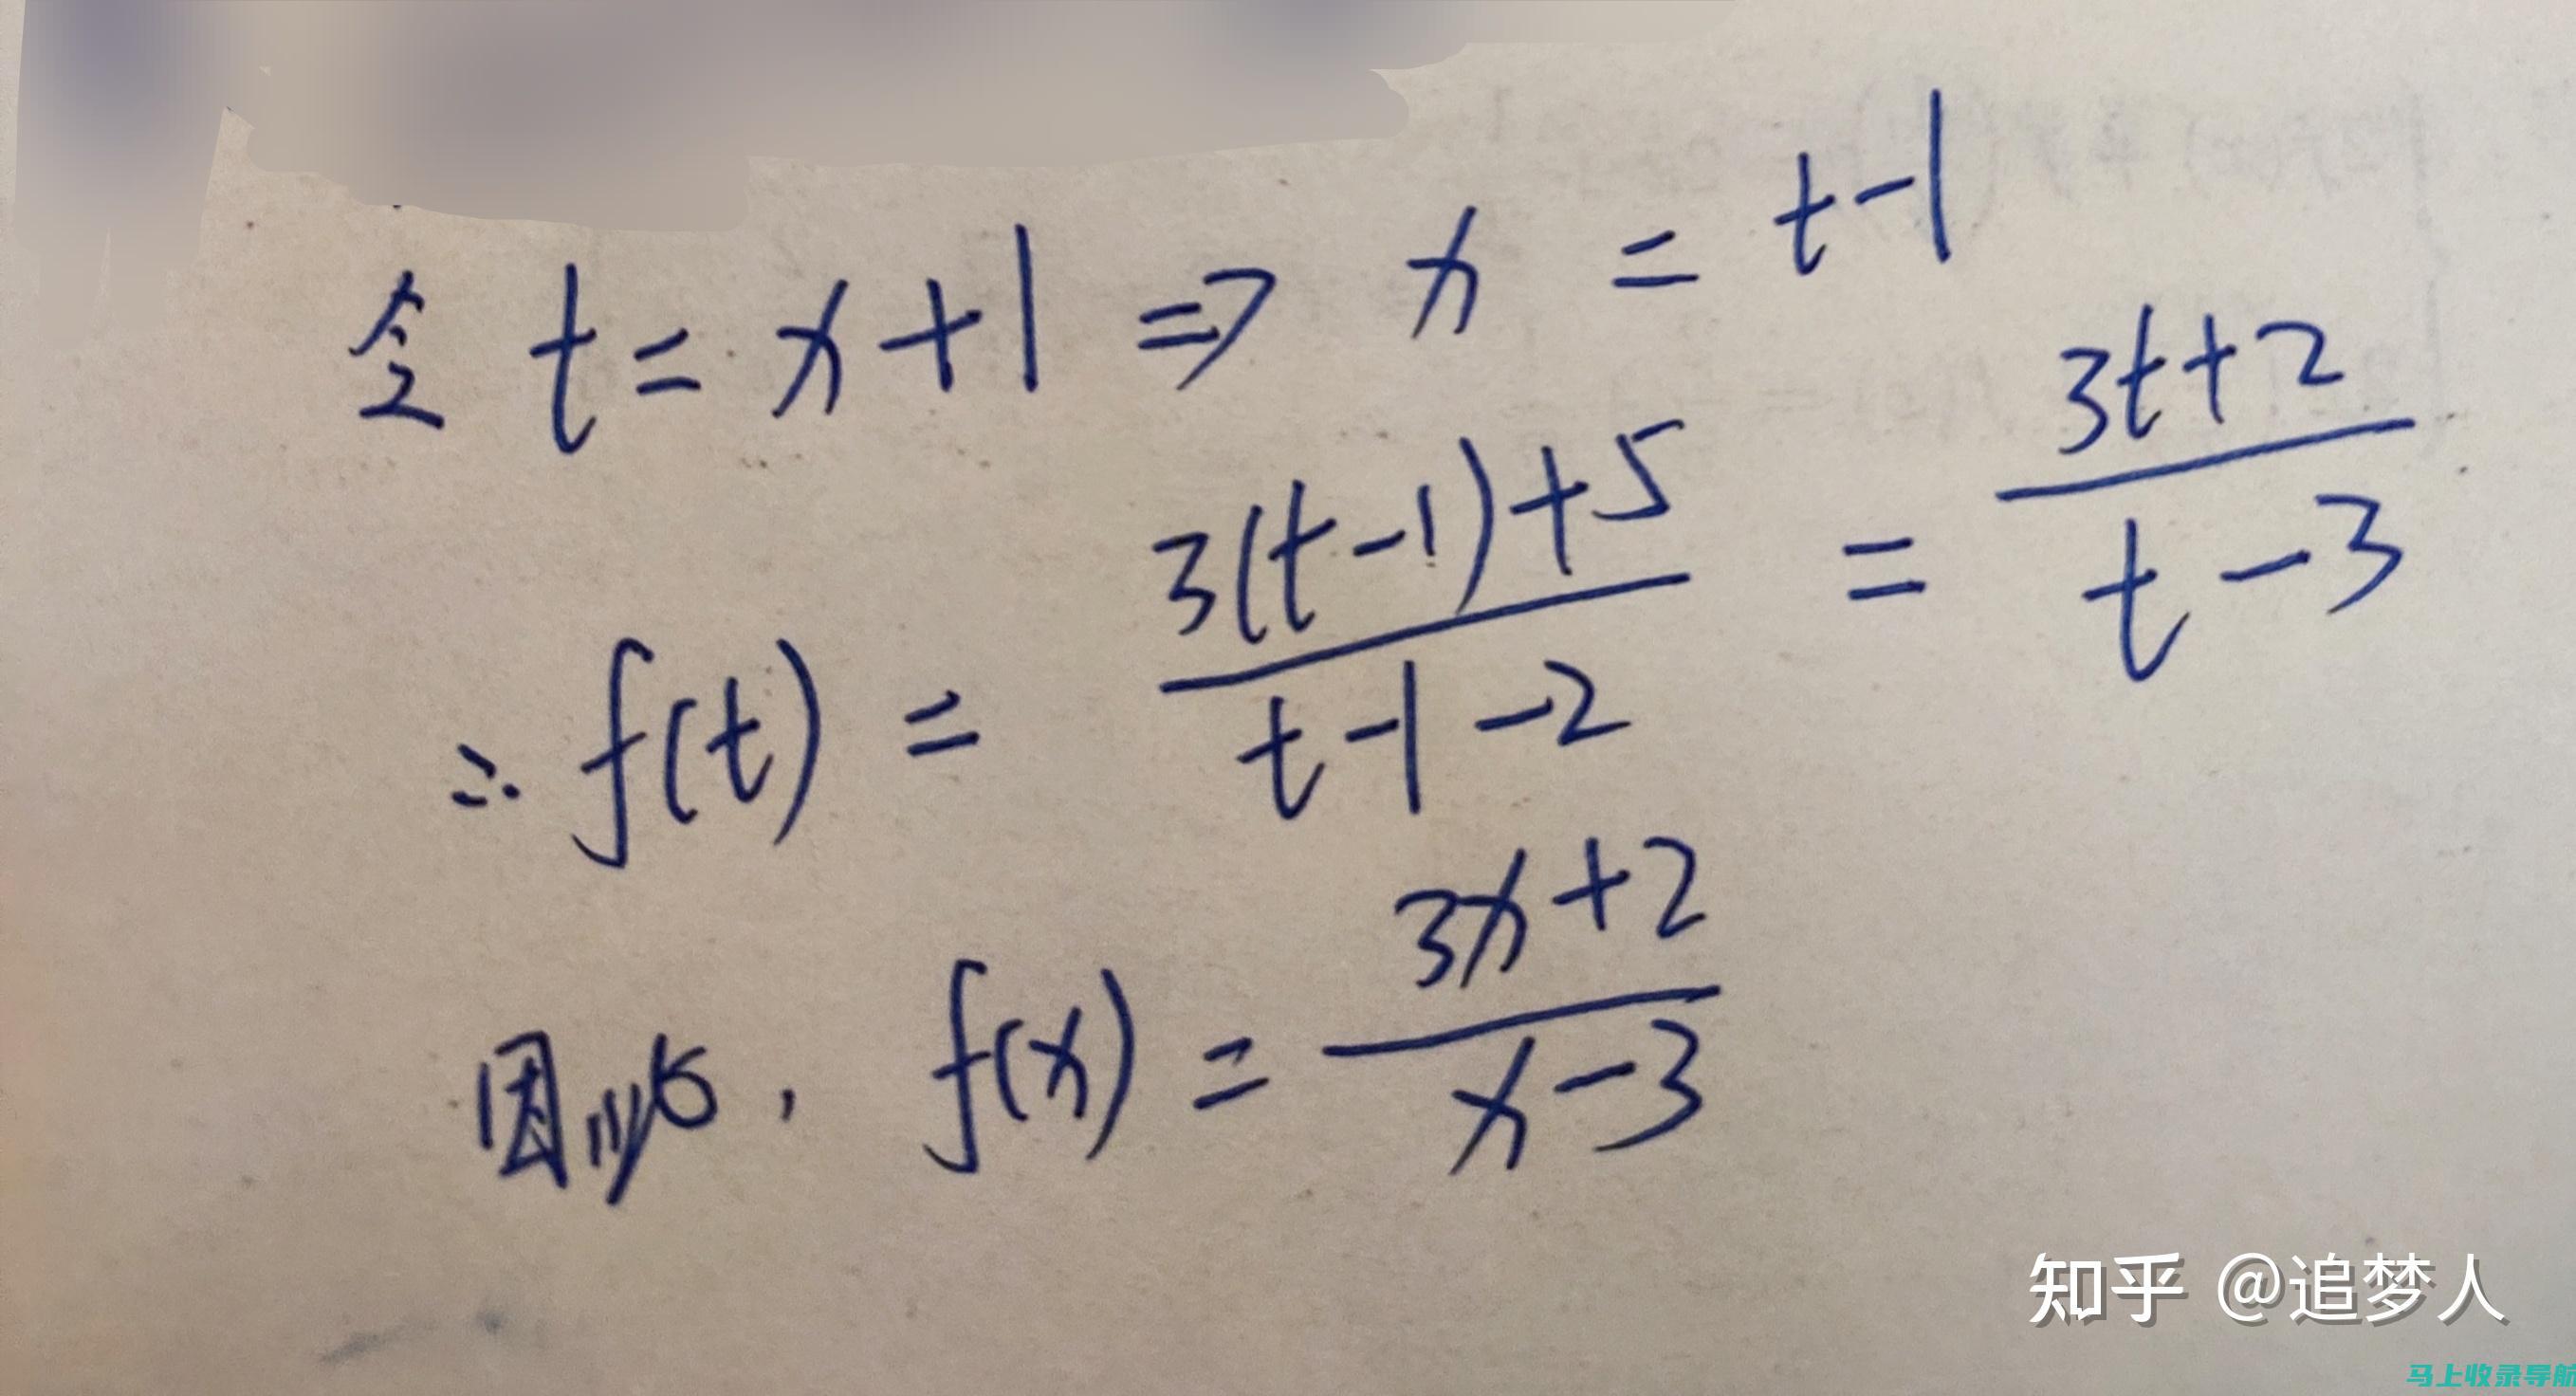 令 t = x+1 => x = t-1
∴ f(t) = \frac{3(t-1)+5}{t-1-2} = \frac{3t+2}{t-3}
因此, f(x) = \frac{3x+2}{x-3}
知乎 @追梦人
马上收录导航